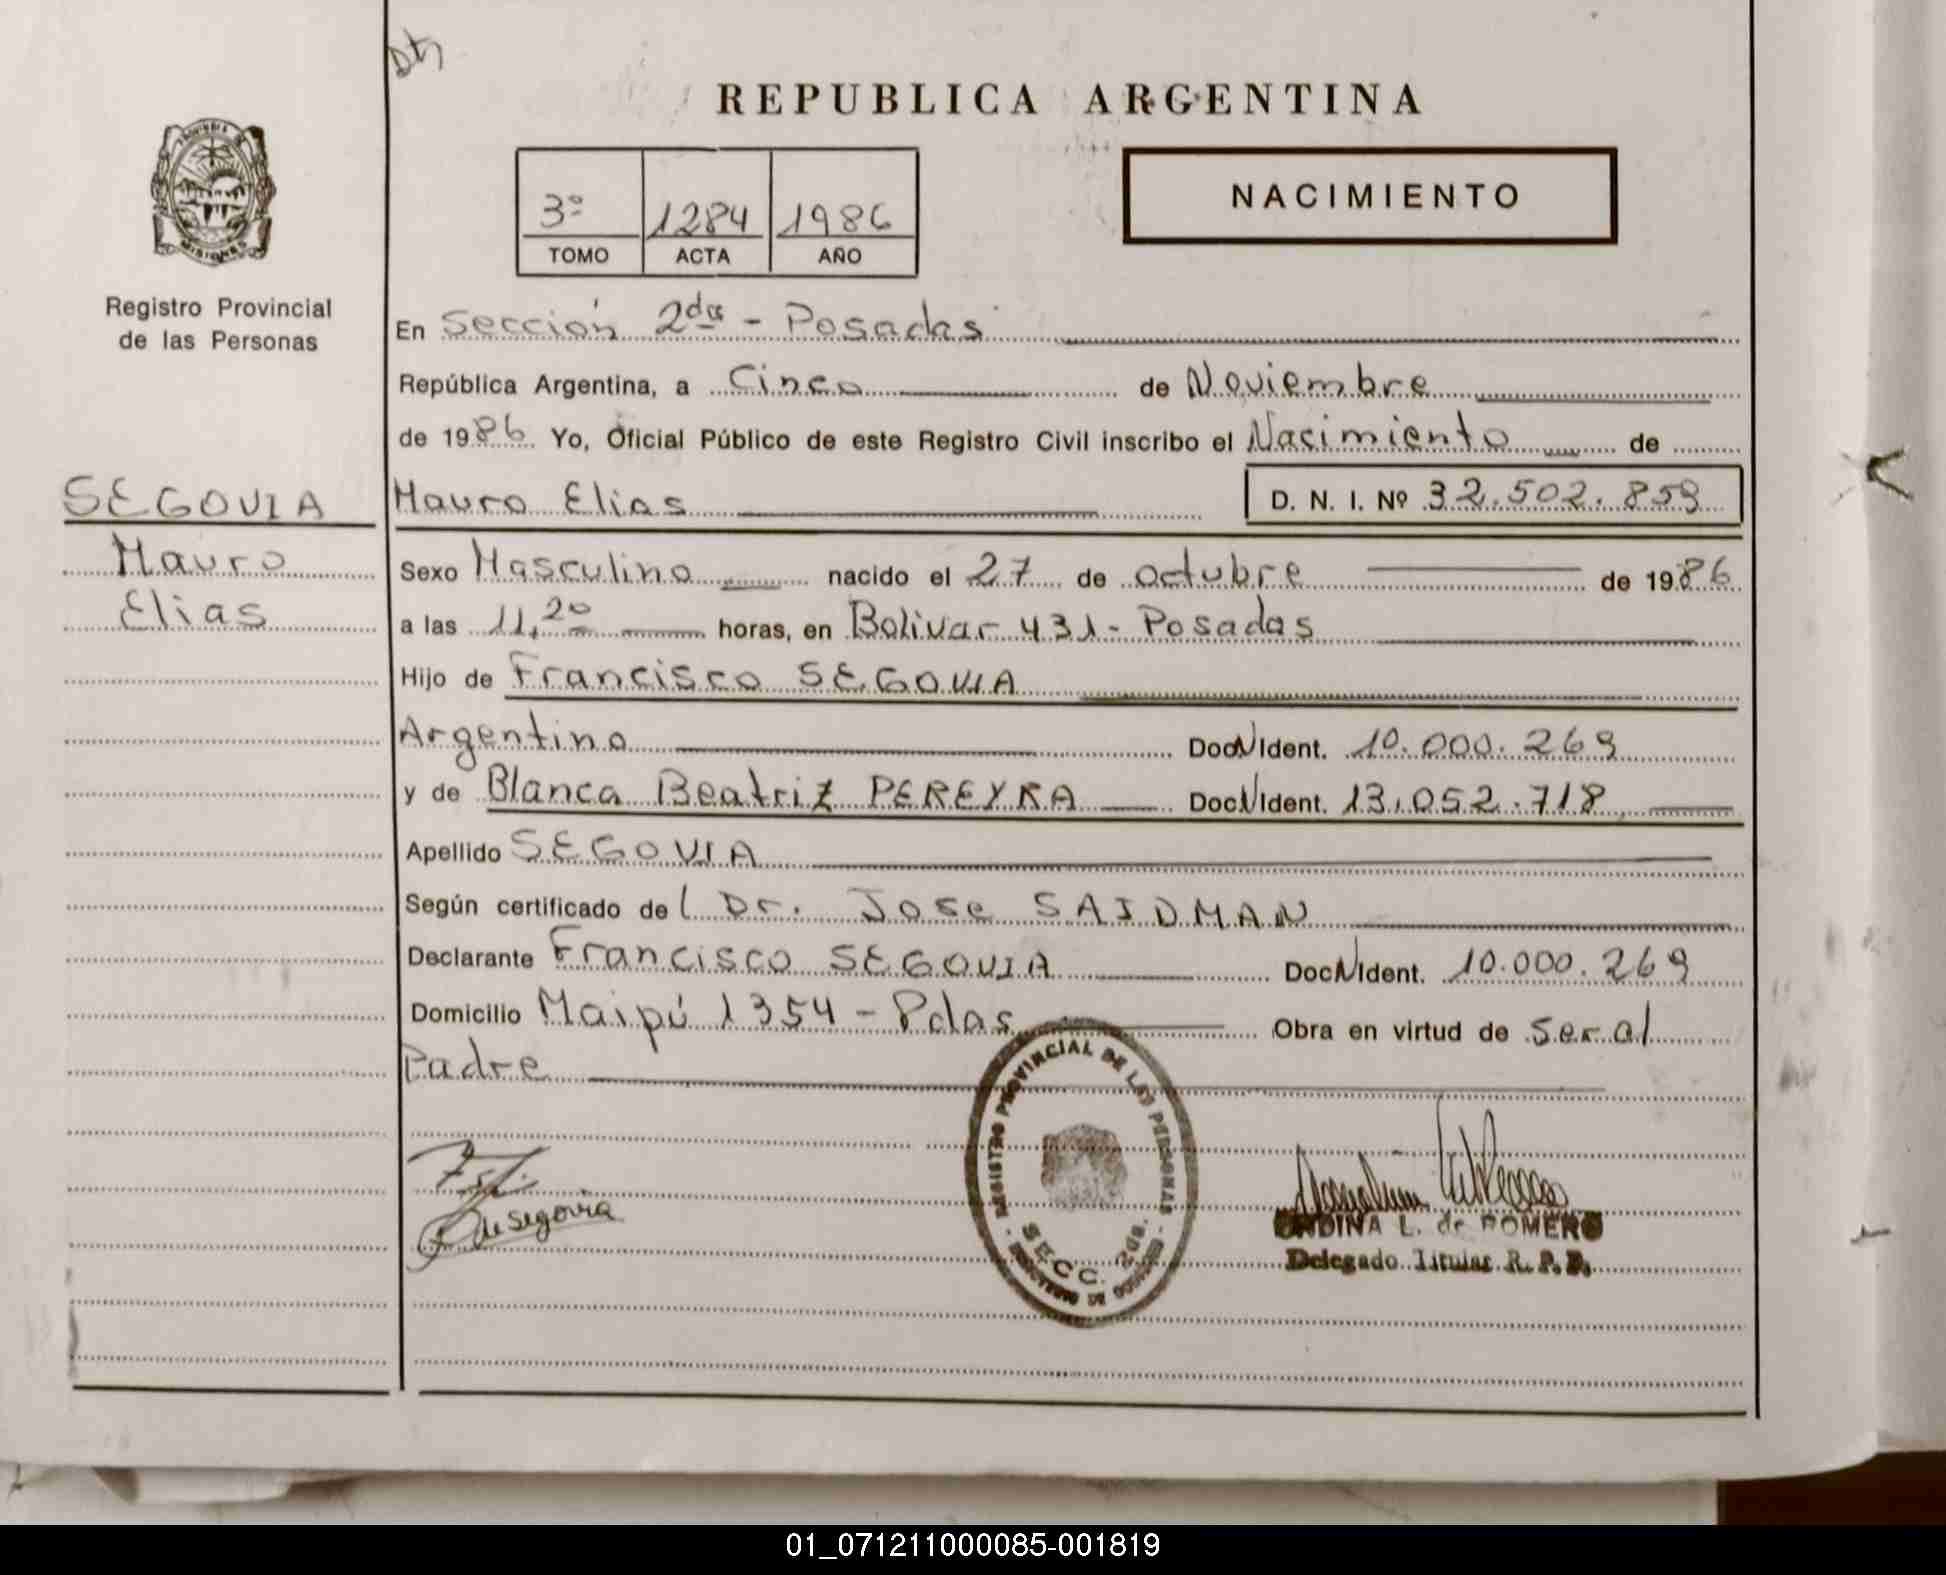 Dts
REPUBLICA ARGENTINA
3º 1284 1986
TOMO ACTA AÑO
NACIMIENTO
PROVINCIA DE
MISIONES
Registro Provincial
de las Personas
En Sección 2da - Posadas
República Argentina, a Cinco de Noviembre
de 1986 Yo, Oficial Público de este Registro Civil inscribo el Nacimiento de
SEGOVIA
Mauro
Elias
Mauro Elias D. N. I. Nº 32.502.859
Sexo Masculino nacido el 27 de octubre de 1986
a las 11,20 horas, en Bolivar 431 - Posadas
Hijo de Francisco SEGOVIA
Argentino Doc N Ident. 10.000.269
y de Blanca Beatriz PEREYRA Doc N Ident. 13.052.718
Apellido SEGOVIA
Según certificado del Dr. Jose SAIDMAN
Declarante Francisco SEGOVIA Doc N Ident. 10.000.269
Domicilio Maipú 1354 - Pdas Obra en virtud de ser al
Padre
REGISTRO PROVINCIAL DE LAS PERSONAS
SECC. 2DA.
de Segovia
ONDINA L. de ROMERO
Delegado Titular R. P. P.
01_071211000085-001819